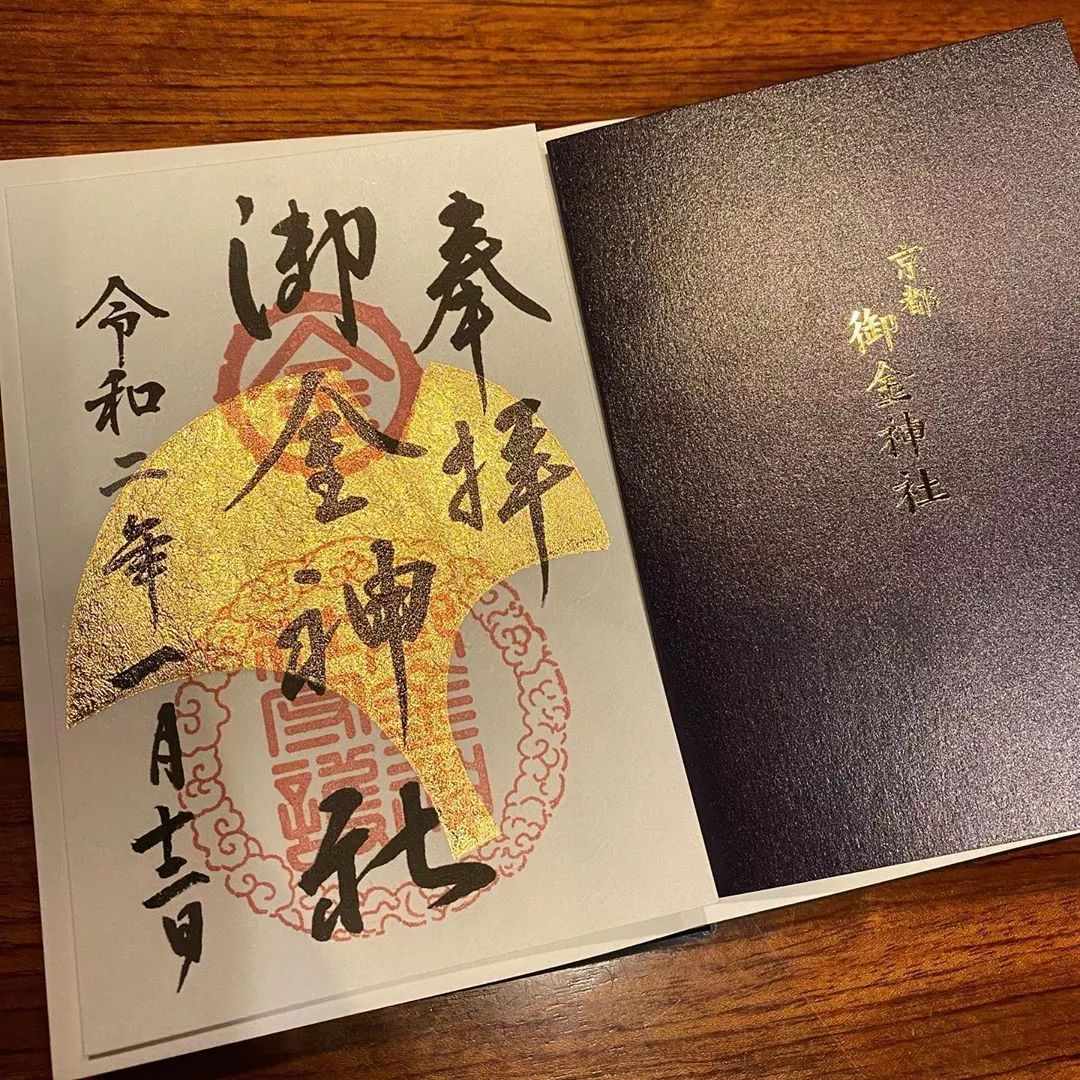 京都
御金神社
奉拝
御金神社
令和二年一月十三日